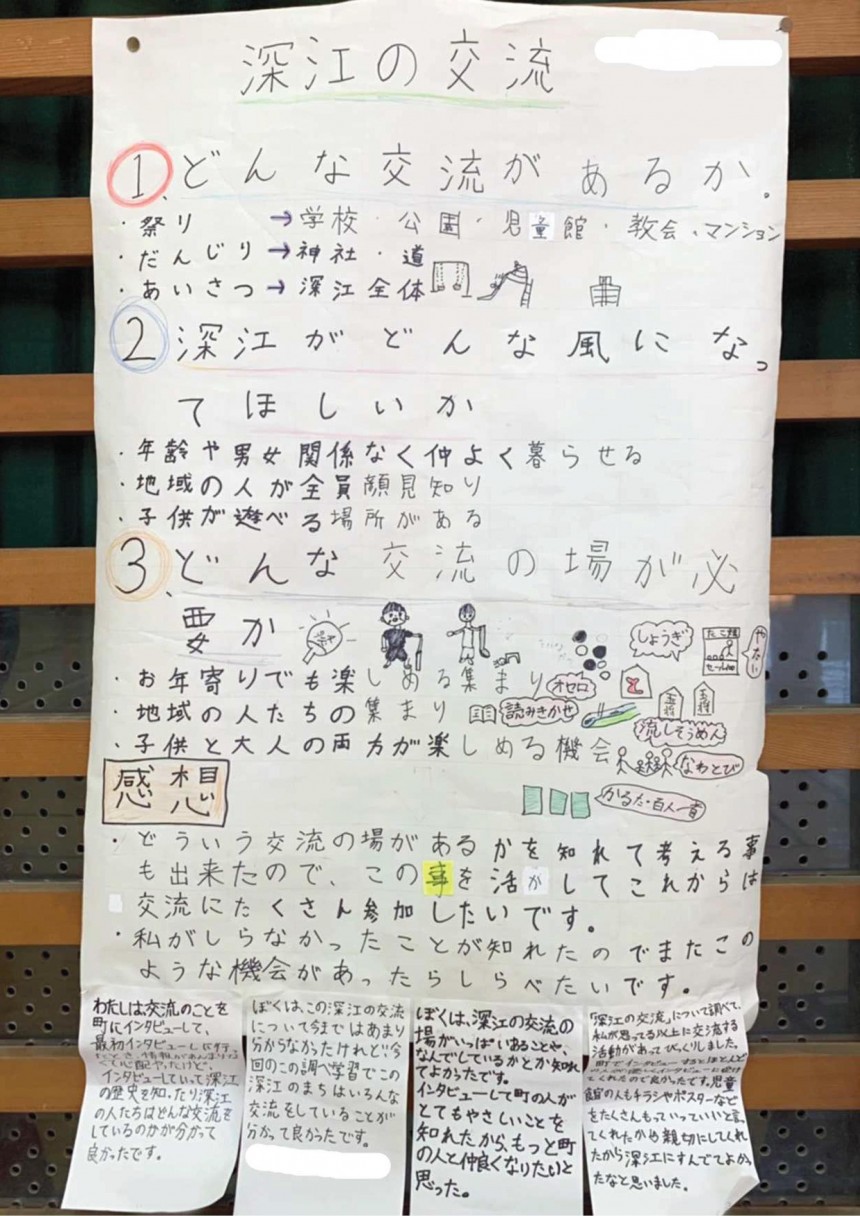 深江の交流
1、どんな交流があるか。
・祭り →学校・公園・児童館・教会、マンション
・だんじり→神社・道
・あいさつ→深江全体
2 深江がどんな風になっ
てほしいか
・年齢や男女関係なく仲よく暮らせる
・地域の人が全員顔見知り
・子供が遊べる場所がある
3、どんな交流の場が必
要か
しょうぎ
やたい
・お年寄りでも楽しめる集まり
オセロ
と
・地域の人たちの集まり
読みきかせ
流しそうめん
・子供と大人の両方が楽しめる機会
なわとび
かるた・百人一首
感想
・どういう交流の場があるかを知れて考える事
も出来たので、この事を活かしてこれからは
交流にたくさん参加したいです。
・私がしらなかったことが知れたのでまたこの
ような機会があったらしらべたいです。
わたしは交流のことを
町にインタビューして、
最初インタビューしに行
くて心配やったけど、
インタビューしていて深江
の歴史を知ったり深江
の人たちはどんな交流を
しているのかが分かって
良かったです。
ぼくは、この深江の交流
について今まではあまり
分からなかったけれど今
回のこの調べ学習でこの
深江のまちはいろんな
交流をしていることが
分かって良かったです。
ぼくは、深江の交流の
場がいっぱいあることや、
なんでしているかとか知れ
てよかったです。
インタビューして町の人が
とてもやさしいことを
知れたから、もっと町
の人と仲良くなりたいと
思った。
「深江の交流」について調べて、
私が思ってる以上に交流する
活動があってびっくりしました。
町でインタビューするとほとんど
くれたので良かったです。児童
館の人もチラシやポスターなど
をたくさんもっていっていいと言っ
てくれたかや親切にしてくれ
たから深江にすんでてよかっ
たなと思いました。